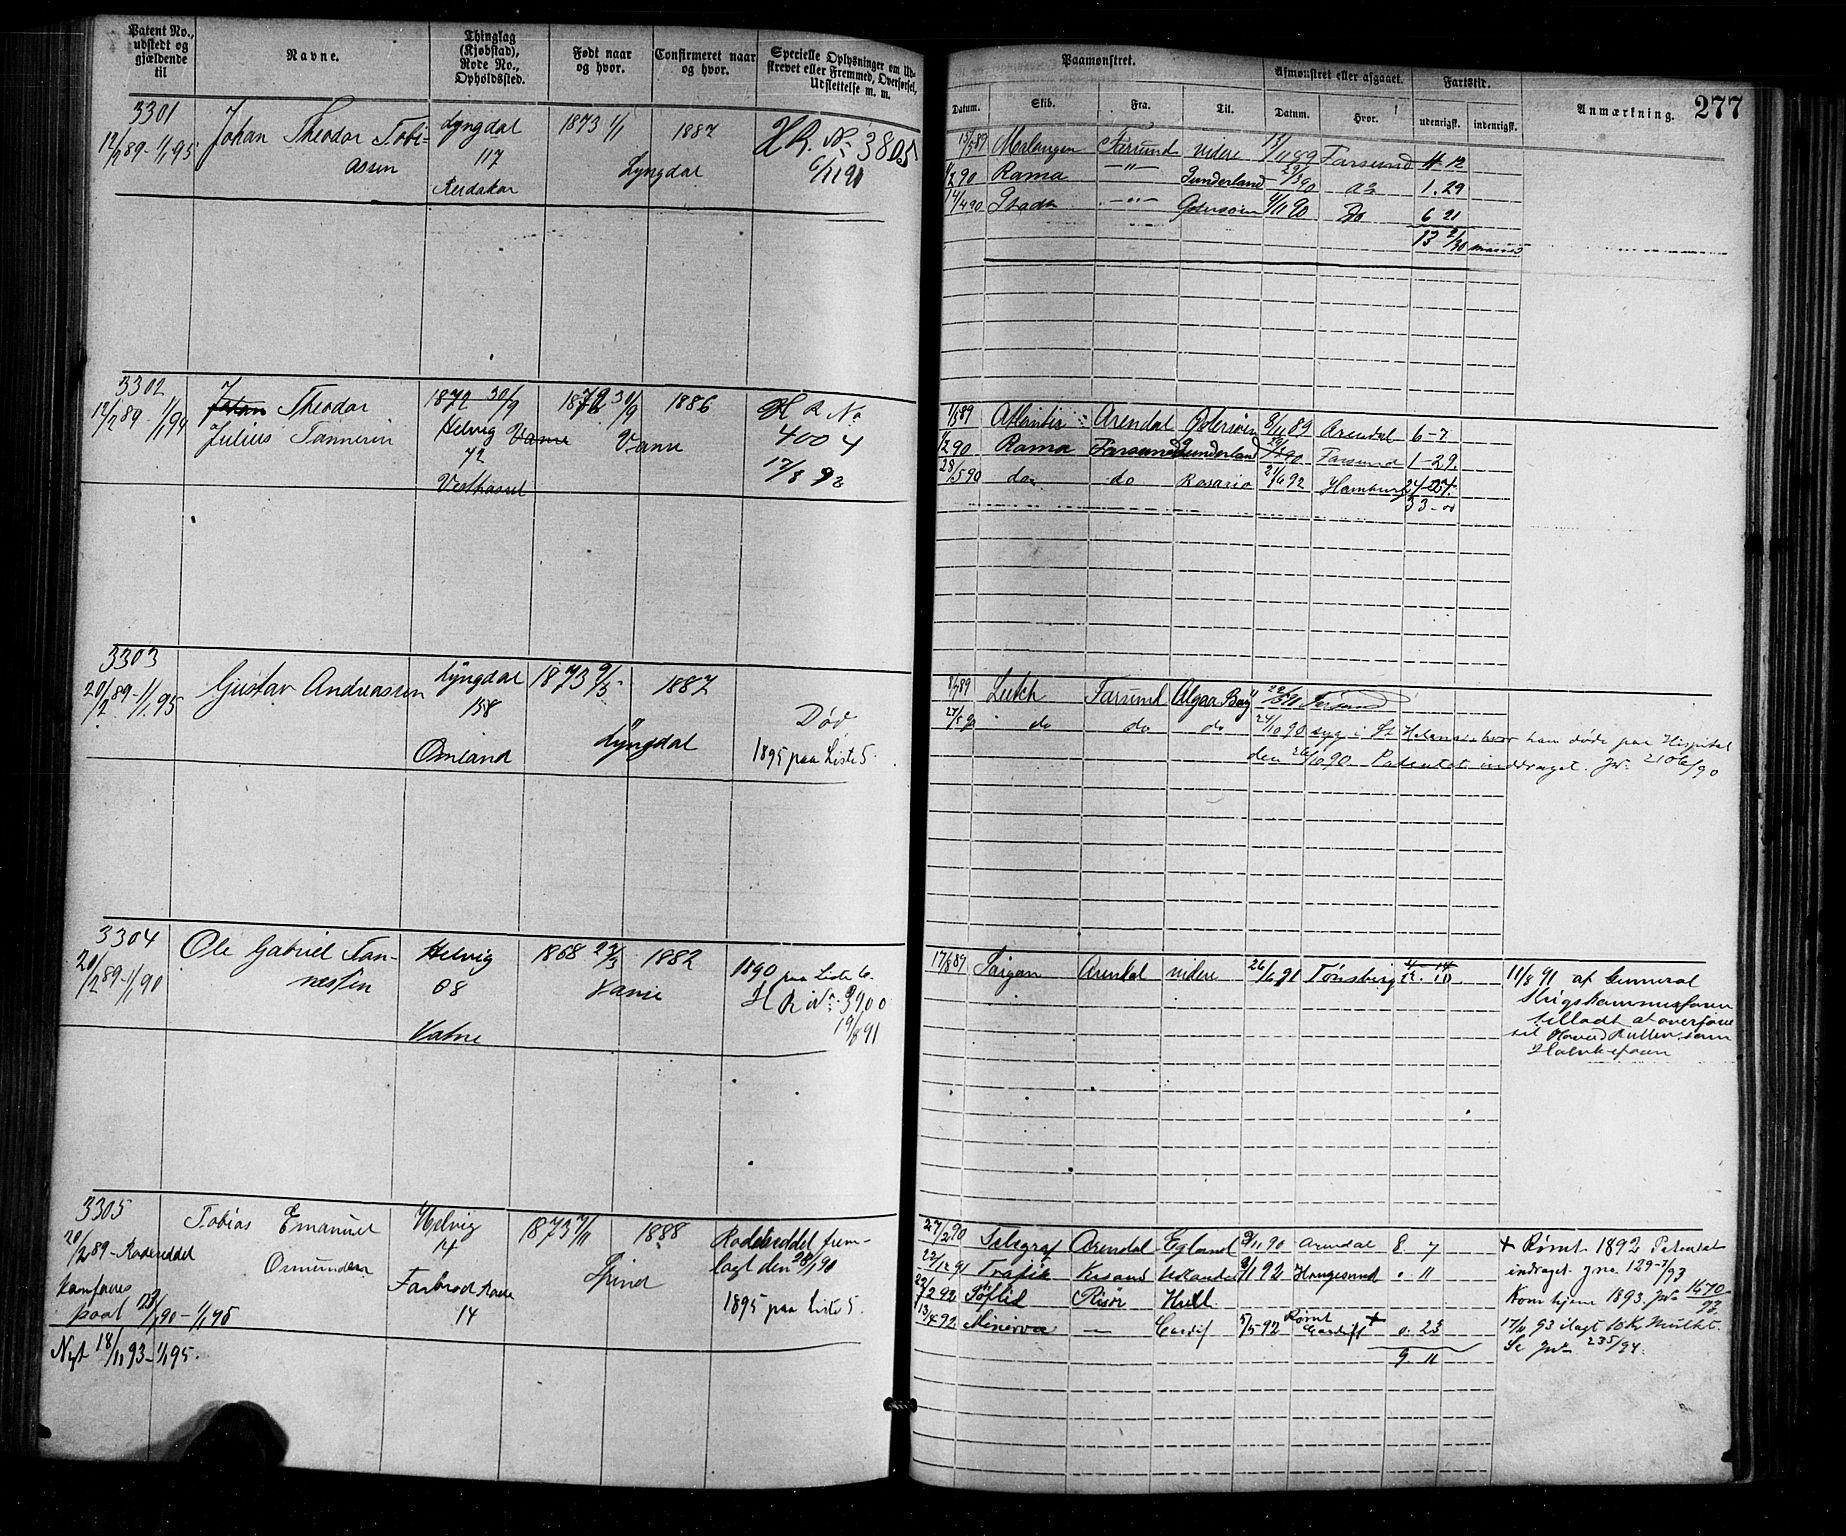 Patent No.,
udstedt og
gjældende
til
Navne.
Thinglag
(Kjøbstad),
Rode No.,
Opholdssted.
Født naar
og hvor.
Confirmeret naar
og hvor.
Specielle Oplysninger om Ud-
skrevet eller Fremmed, Overførsel,
Udslettelse m. m.
3301
12/2 89 - 1/1 95
Johan Theodor Tobi-
assen
Lyngdal
117
1873 1/1
1887
Lyngdal
H.R. No 3805
6/11 90
3302
12/2 89 - 1/1 94
Johan Theodor
Julius Tannesen
1872 30/9
Helvig Vanse
72
Vesthassel
1872 30/9
Vanse
1886
H R No
4004
17/8 92
3303
20/2 89 - 1/1 95
Gustav Andreassen
Lyngdal
158
Omland
1873 9/3
1887
Lyngdal
Død
1895 paa Liste 5.
3304
20/2 89 - 1/1 90
Ole Gabriel Tan-
nessen
Helvig
68
Vatne
1868 22/3
Vanse
1882
1890 paa Liste 6.
H R No 3900
19/8 91
3305
20/2 89 - Rodeseddel
Tobias Emanuel
Osmundsen
Helvig
14
Farbrod Vanse
14
1873 7/11
1888
Spind
Rodeseddel frem-
lagt den 28/1 90
1895 paa Liste 5.
Nyt 18/11 93 - 1/1 95.
Paamønstret.
Afmønstret eller afgaaet.
Fartstid.
Anmærkning.
277
Datum.
Skib.
Fra.
Til.
Datum.
Hvor.
udenrigsk.
indenrigsk.
15/5 89 Merlangen Farsund videre 11/11 89 Farsund 4 12
1/2 90 Rama -"- Sunderland 29/3 90 do 1. 29
14/4 90 -"- Østersøen 4/11 90 Do 6 21
13 2/30 maaned
1/5 89 Atlantic Arendal Østersøen 8/11 89 Arendal 6-7
1/2 90 Rama Farsund Sunderland 29/3 90 Farsund 1-29.
28/5 90 do do Rosario 21/6 92 Hamburg 24-24.
33-00
Farsund Algoa Bay Farsund
27/5 90 do do do 24/10 90 syg i St Helena hvor han døde paa Hospital
den 26/10 90. Patentet inddraget. Jr: 2106/90
17/8 89 Saigon Arendal videre 26/6 91 Tønsberg
11/8 91 af General
Krigskommissæren
tilladt at overføre
til Hovedrullen som
27/2 90 Telegraf Arendal England 9/11 90 Arendal 8. 7
22/12 91 Trafik Krsand 8/1 92 Haugesund 0 11
22/2 92 Søflid Risør Hull
13/4 92 Minerva — Cardif 5/5 92 Rømt Cardiff + 0. 23
9 11
+ Rømt 1892 Patentet
inddraget gno 129-3/93
Kom hjem 1893. Jno 1470/93.
17/11 93 ilagt 10 K Mulkt.
Se Jno 235/94.